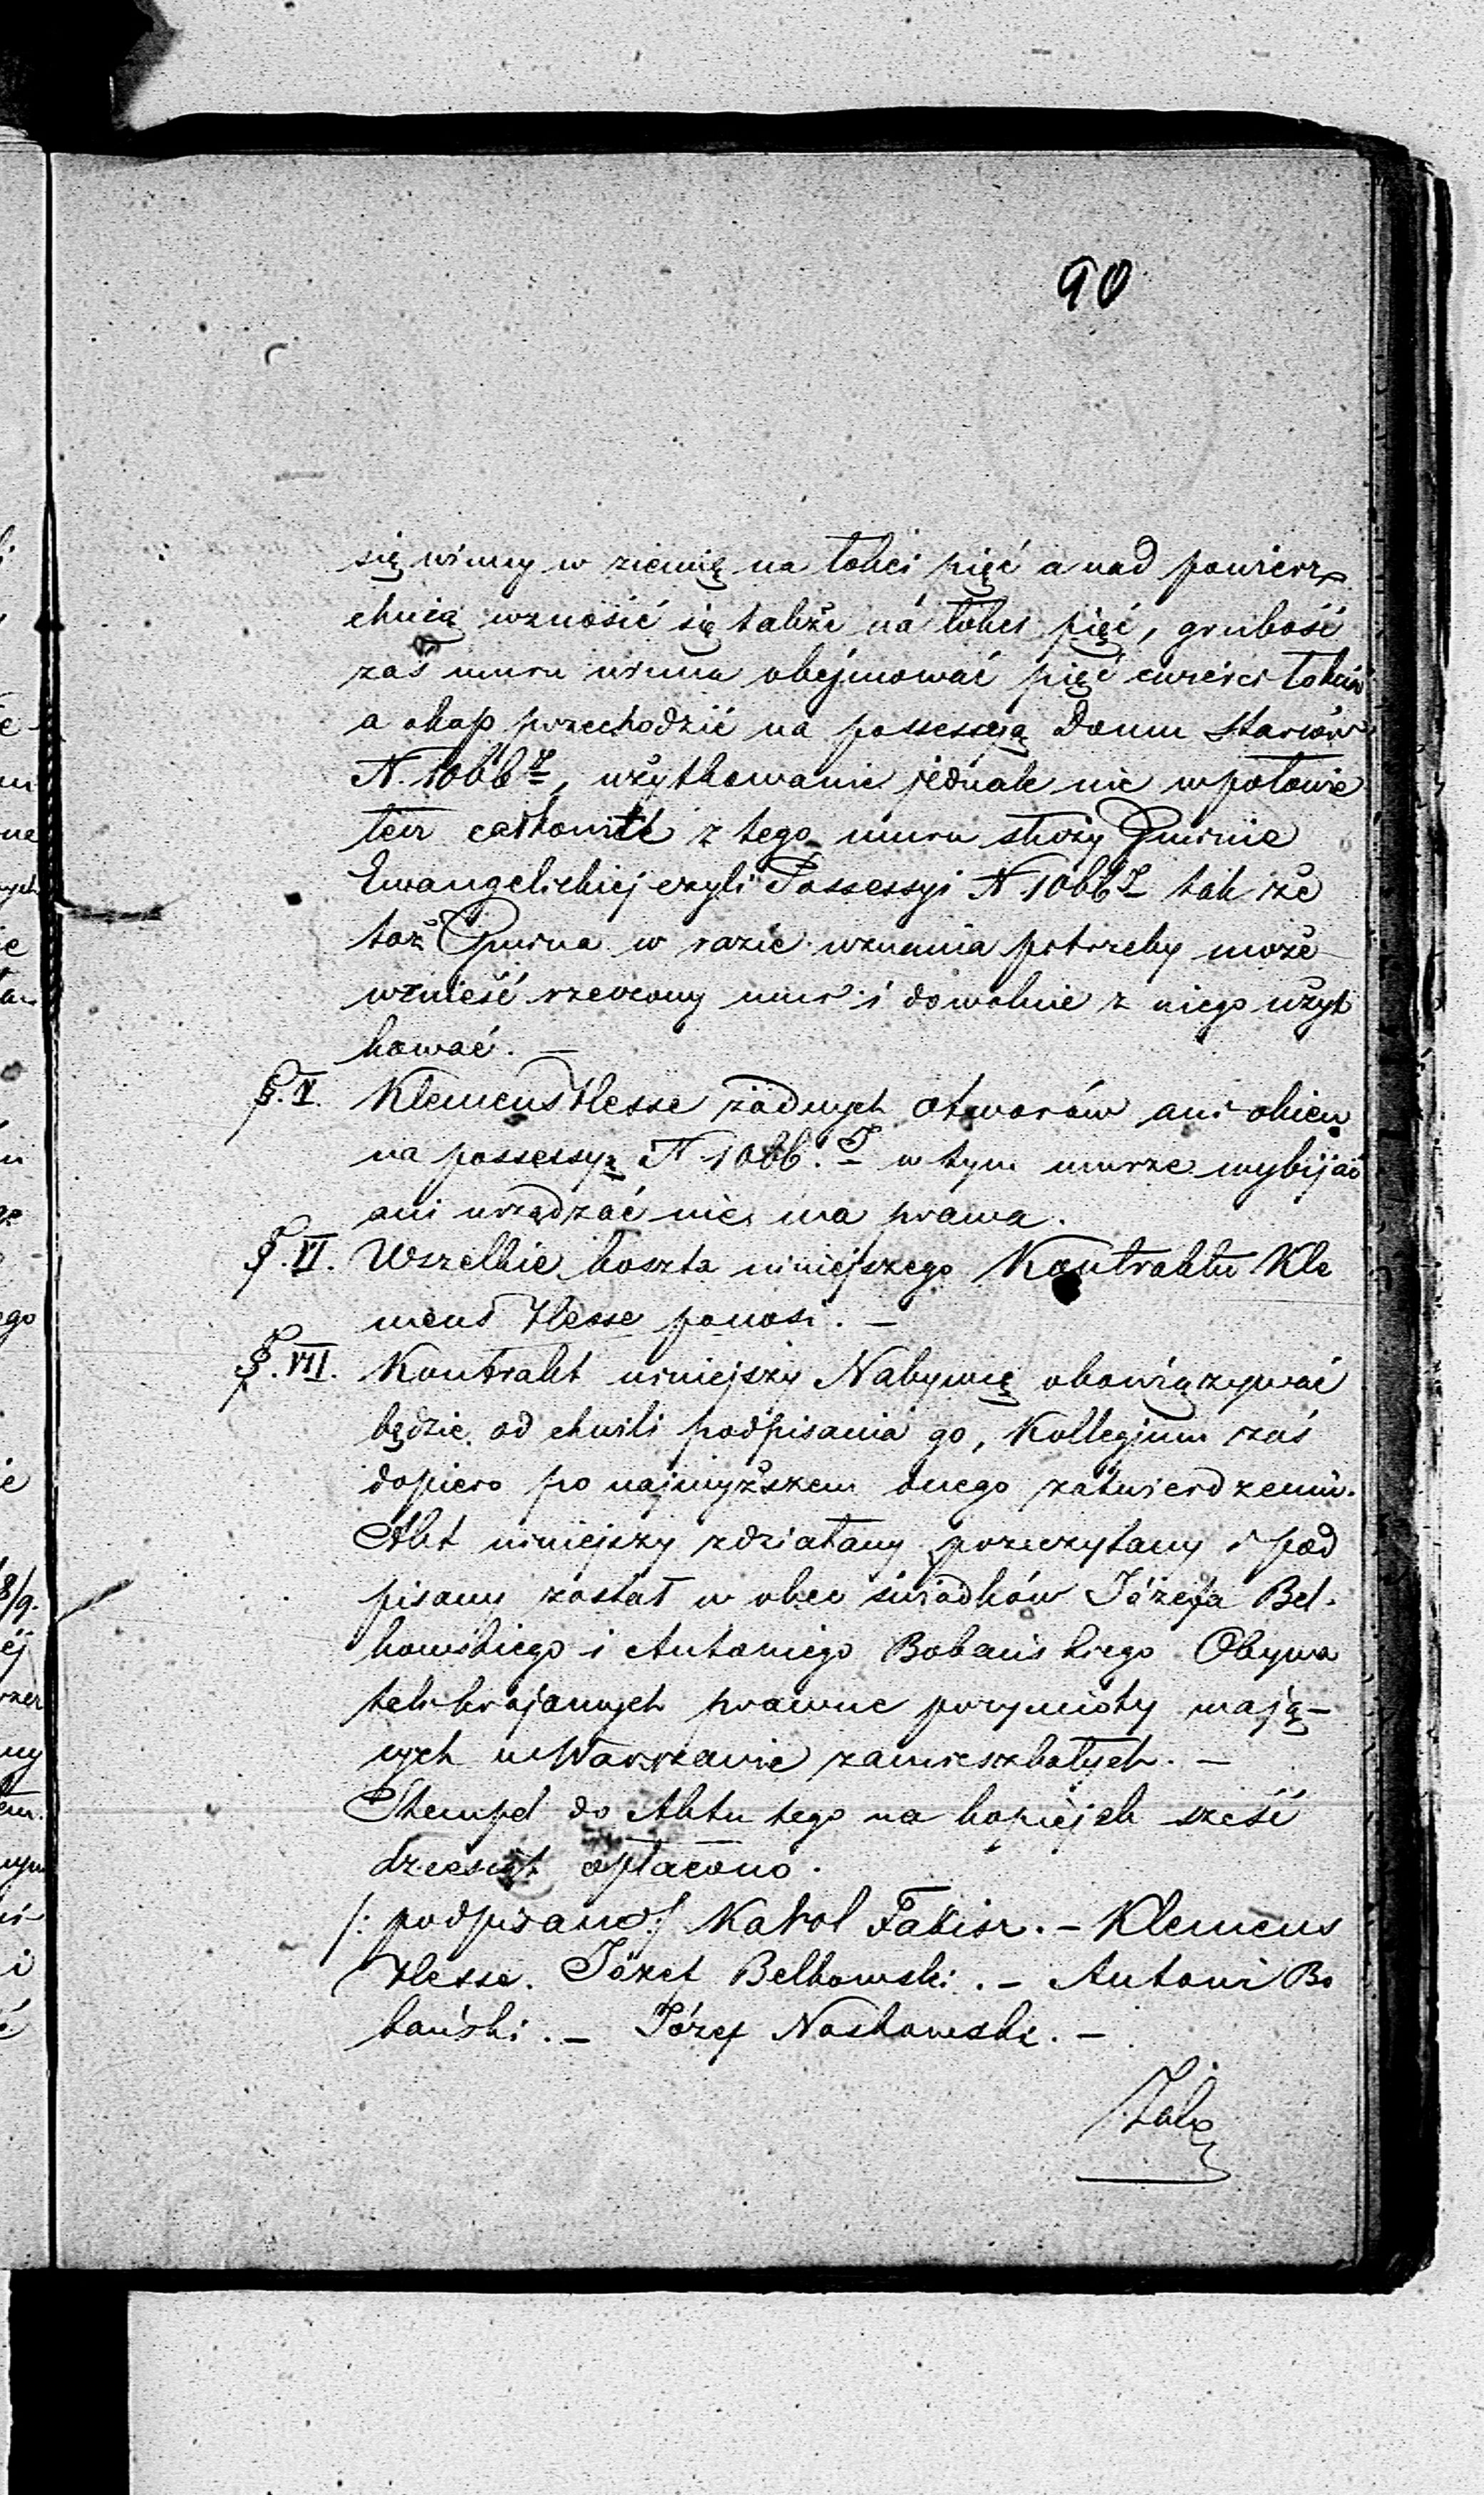 90
się winny w ziemię na łokci pięć a nad powierz
chnią wznosić się także na łokci pięć, grubość
zaś muru winna obejmować pięć ćwierci łokcia
a okap przechodzić na possessyą Domu Starców
N. 1066 użytkowanie jednak nie w połowie
lecz całkowite z tego muru służy Gminie
Ewangelickiej czyli Possessyi N 1066 tak że
taż Gmina w razie uznania potrzeby może
wznieść rzeczony mur i dowolnie z niego użyt
kować. —
§. V. Klemens Hesse żadnych otworów ani okien
na possessyą N. 1066. w tym murze wybijać
ani urządzać nie ma prawa.
§. VI. Wszelkie koszta niniejszego Kontraktu Kle
mens Hesse ponosi. —
§. VII. Kontrakt niniejszy Nabywcę obowiązywać
będzie od chwili podpisania go, Kollegjum zaś
dopiero po najwyższem onego zatwierdzeniu.
Akt niniejszy zdziałany przeczytany i pod
pisany został w obec świadków Józefa Bel-
kowskiego i Antoniego Bobańskiego Obywa
teli krajowych prawne przymioty mają-
cych w Warszawie zamieszkałych. —
Stempel do Aktu tego na kopiejek sześć
dziesiąt opłacono.
/: podpisano :/ Karol Fabisz. — Klemens
Hesse. Józef Belkowski. — Antoni Bo
bański. — Józef Noskowski. —